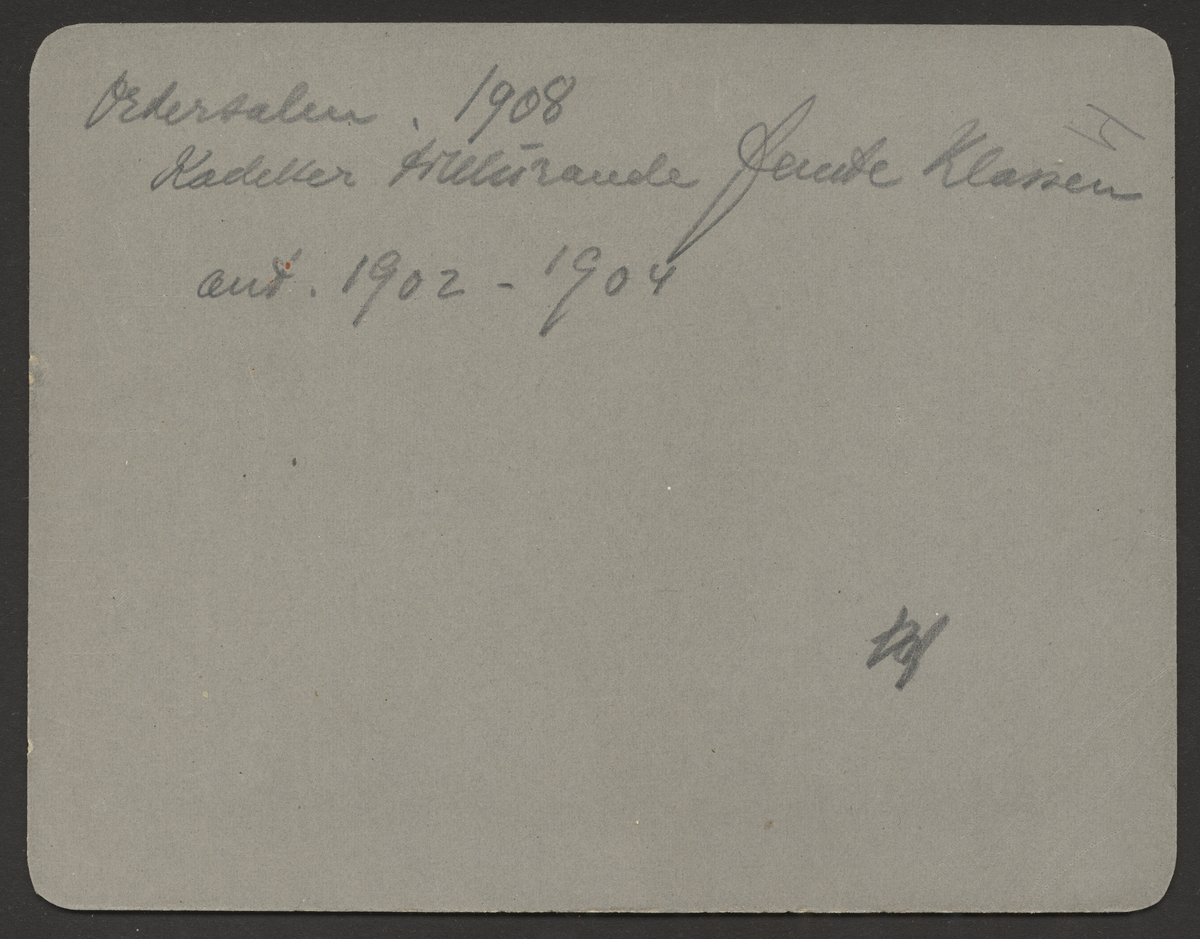 Ordersalen. 1908
H
Kadetter tillhörande femte Klassen
ant. 1902 - 1904